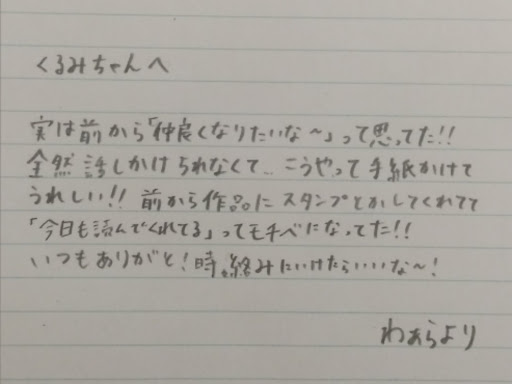 くるみちゃんへ
実は前から「仲良くなりたいな～」って思ってた!!
全然話しかけられなくて…こうやって手紙かけて
うれしい!! 前から作品にスタンプとかしてくれてて
「今日も読んでくれてる」ってモチベになってた!!
いつもありがと!時々絡みにいけたらいいな～!
わぁらより